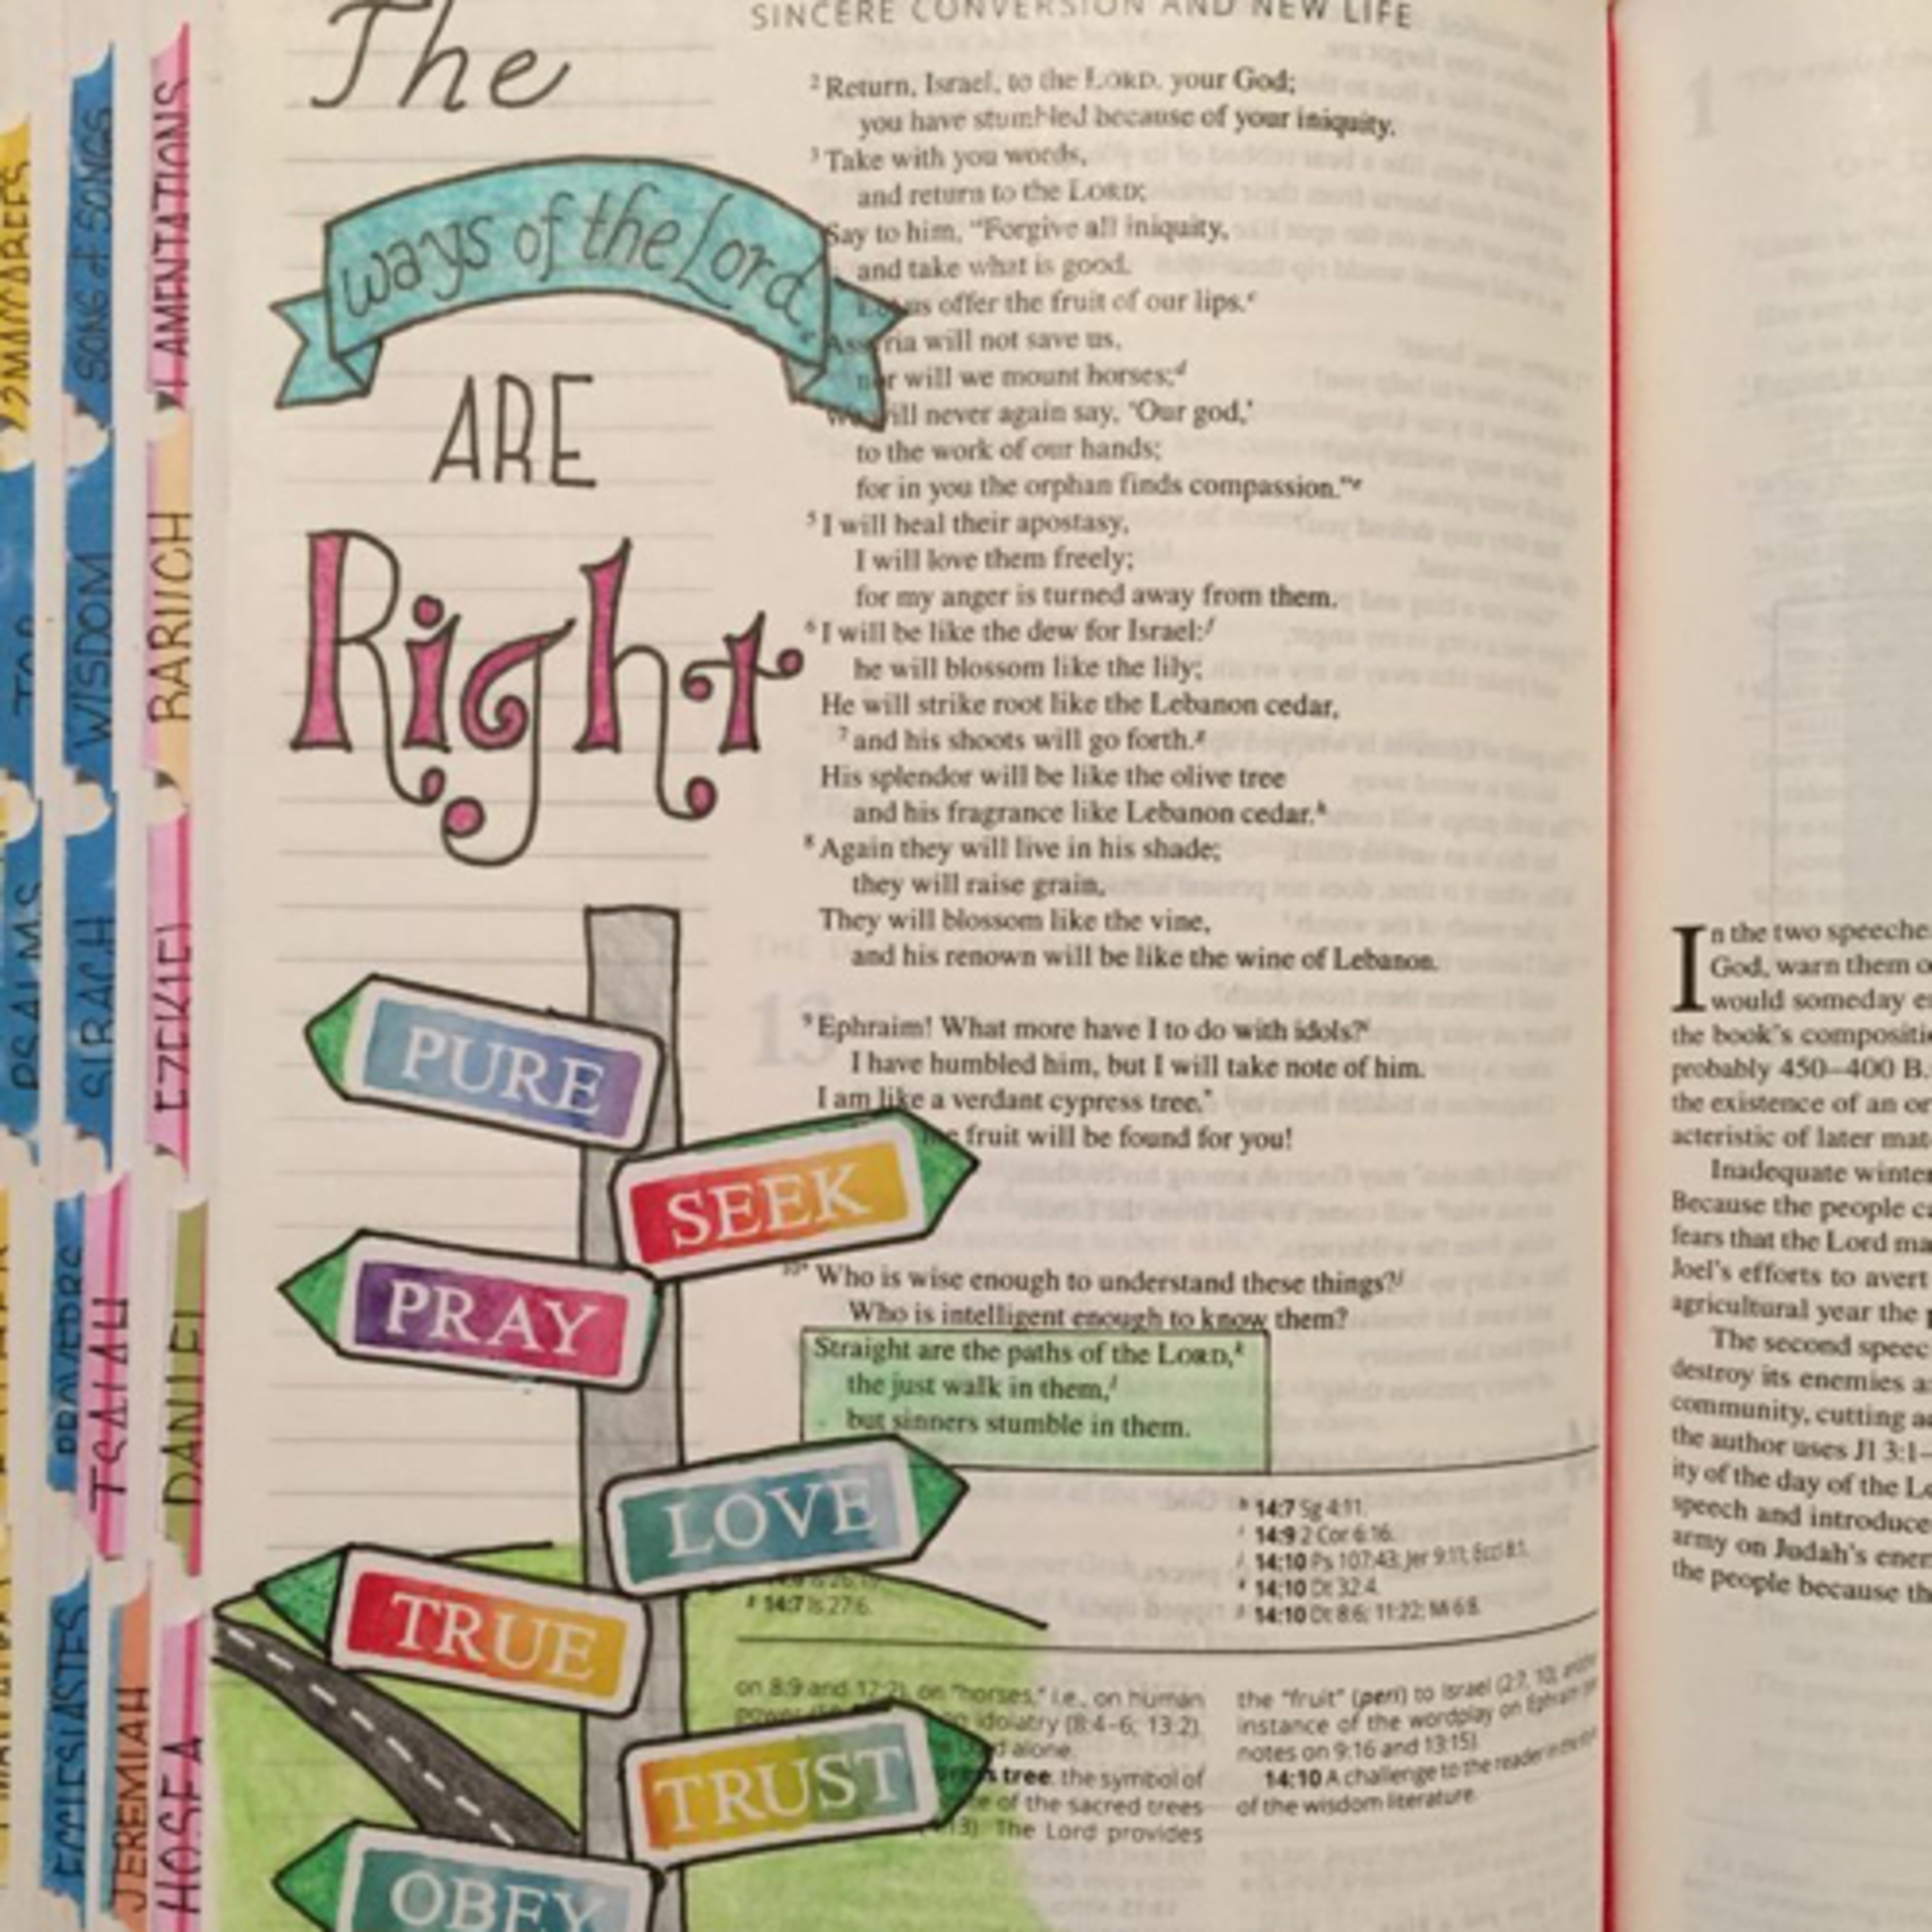 The
ways of the Lord
ARE
Right
PURE
SEEK
PRAY
LOVE
TRUE
TRUST
OBEY
SINCERE CONVERSION AND NEW LIFE
2 Return, Israel, to the LORD, your God;
you have stumbled because of your iniquity.
3 Take with you words,
and return to the LORD;
Say to him, “Forgive all iniquity,
and take what is good.
Let us offer the fruit of our lips.c
Assyria will not save us,
nor will we mount horses;d
We will never again say, ‘Our god,’
to the work of our hands;
for in you the orphan finds compassion.”e
5 I will heal their apostasy,
I will love them freely;
for my anger is turned away from them.
6 I will be like the dew for Israel:f
he will blossom like the lily;
He will strike root like the Lebanon cedar,
7 and his shoots will go forth.g
His splendor will be like the olive tree
and his fragrance like Lebanon cedar.h
8 Again they will live in his shade;
they will raise grain,
They will blossom like the vine,
and his renown will be like the wine of Lebanon.
9 Ephraim! What more have I to do with idols?i
I have humbled him, but I will take note of him.
I am like a verdant cypress tree.*
fruit will be found for you!
10* Who is wise enough to understand these things?j
Who is intelligent enough to know them?
Straight are the paths of the LORD,k
the just walk in them,l
but sinners stumble in them.
g 14:7 Is 27:6.
h 14:7 Sg 4:11.
i 14:9 2 Cor 6:16.
j 14:10 Ps 107:43; Jer 9:11; Eccl 8:1.
k 14:10 Dt 32:4.
14:10 Dt 8:6; 11:22; Mi 6:8.
on 8:9 and 12:2), on “horses,” i.e., on human
power idolatry (8:4–6; 13:2),
alone.
tree: the symbol of
of the sacred trees
The Lord provides
the “fruit” (peri) to Israel (2:7, 10),
instance of the wordplay on Ephraim
notes on 9:16 and 13:15).
14:10 A challenge to the reader in the
of the wisdom literature.
In the two speeche
God, warn them o
would someday e
the book’s compositi
probably 450–400 B.
the existence of an or
acteristic of later mat
Inadequate winter
Because the people ca
fears that the Lord ma
Joel’s efforts to avert
agricultural year the p
The second speec
destroy its enemies a
community, cutting a
the author uses Jl 3:1–
ity of the day of the Lo
speech and introduce
army on Judah’s enem
the people because th
2 MACCABEES
PSALMS
SONG of SONGS
WISDOM
SIRACH
PROVERBS
ECCLESIASTES
LAMENTATIONS
BARUCH
EZEKIEL
ISAIAH
DANIEL
JEREMIAH
HOSEA